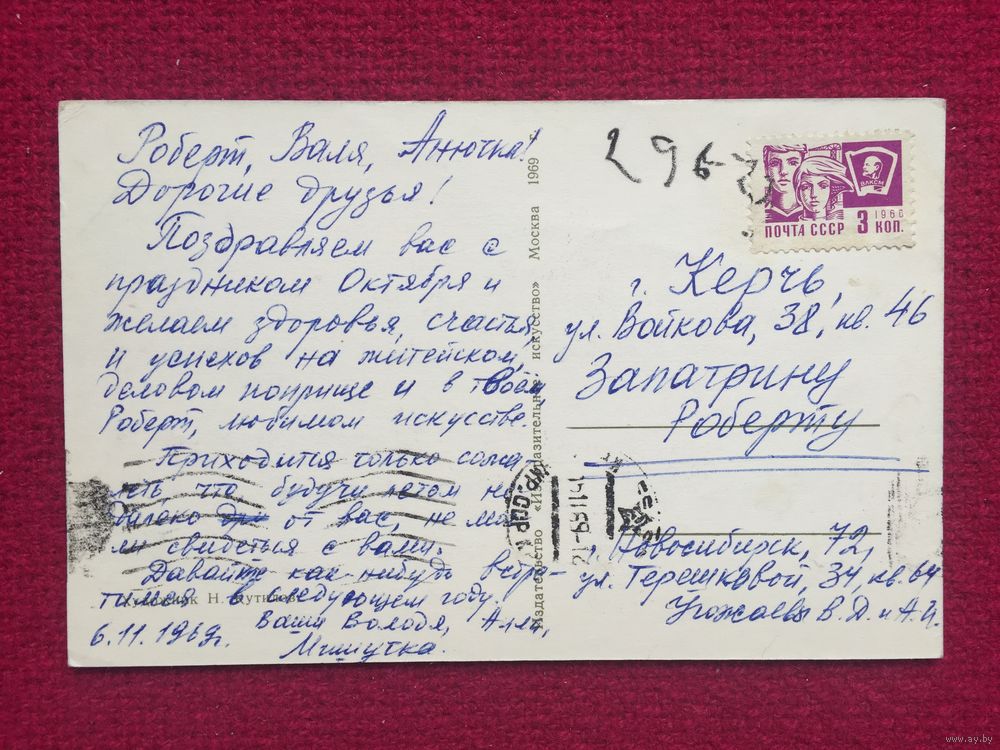 Роберт, Валя, Анючка!
Дорогие друзья!
Поздравляем вас с
праздником Октября и
желаем здоровья, счастья,
и успехов на житейском,
деловом поприще и в твоём,
Роберт, любимом искусстве.
Приходится только сожа-
леть что будучи летом не
далеко от вас, не мог-
ли свидеться с вами.
Давайте как-нибудь встре-
тимся в следующем году.
Ваши Володя, Алла,
Мишутка.
6.11.1969г.
Художник Н. Кутилов
Издательство «Изобразительное искусство» Москва 1969
296
ВЛКСМ
1966
ПОЧТА СССР 3 КОП.
г. Керчь,
ул. Войкова, 38, кв. 46
Запатрину
Роберту
г. Новосибирск, 72,
ул. Терешковой, 34 кв. 64
В. Д. и А. И.
www.ay.by